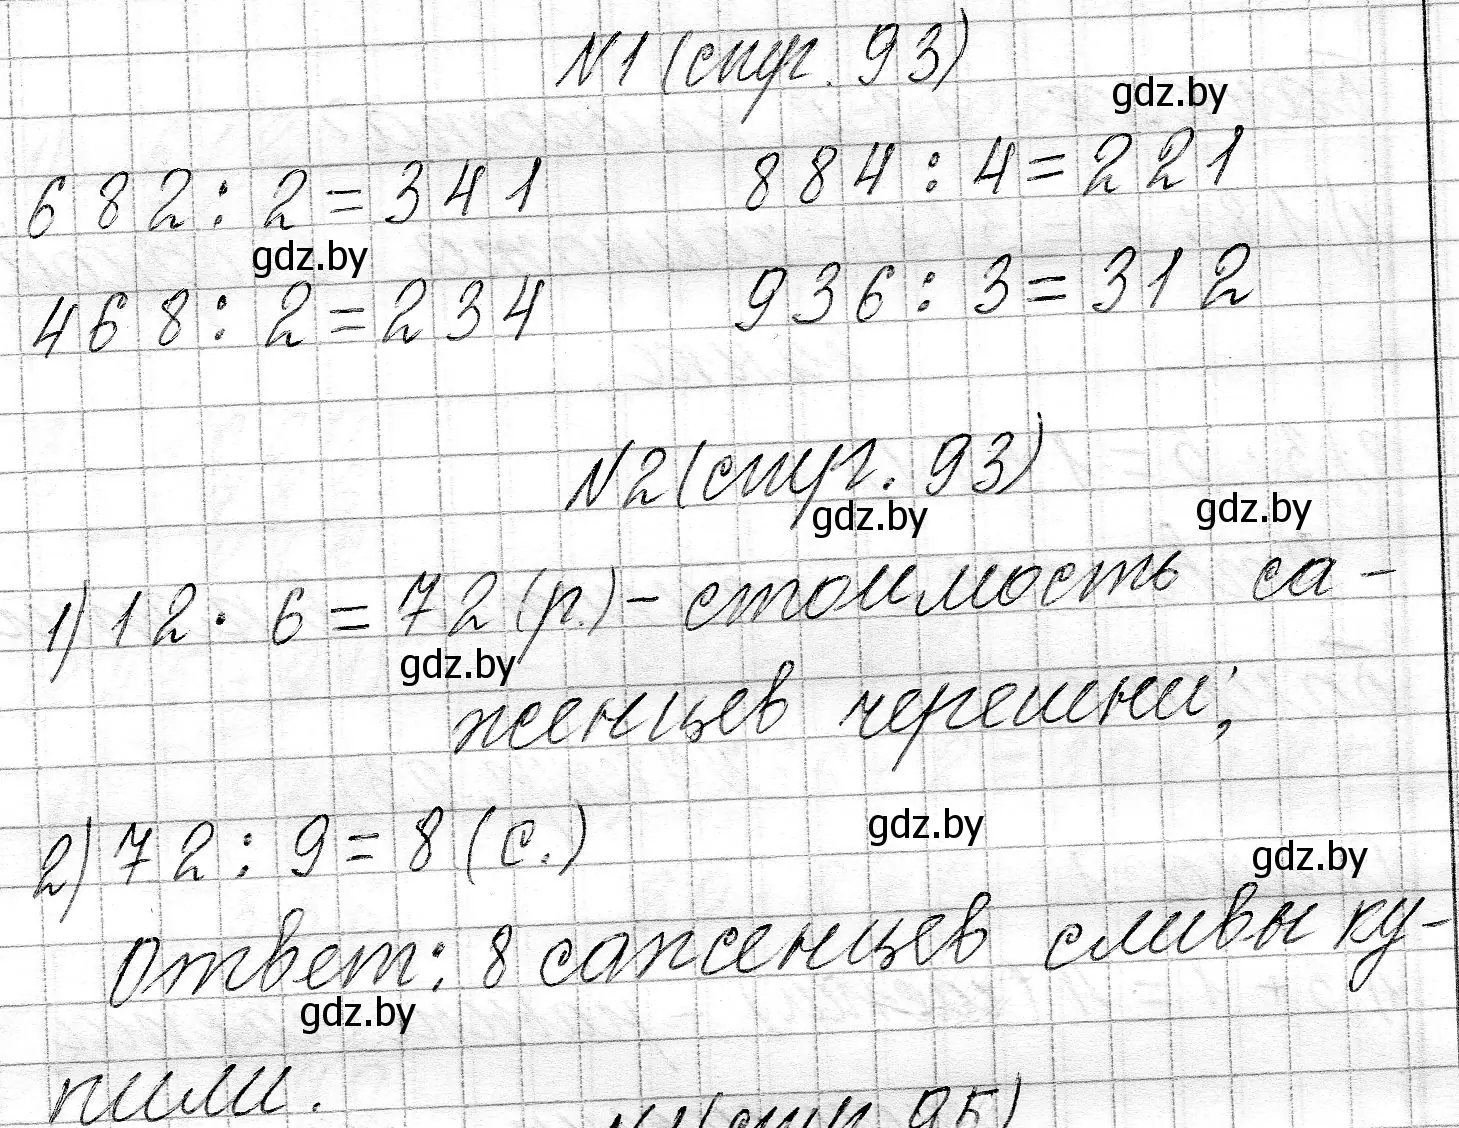 N1 (стр. 93)
gdz.by
682 : 2 = 341 884 : 4 = 221
gdz.by
468 : 2 = 234 936 : 3 = 312
N2 (стр. 93)
gdz.by gdz.by
1) 12 · 6 = 72 (р.) - стоимость са-
gdz.by
женцев черешни;
2) 72 : 9 = 8 (с.)
gdz.by gdz.by
Ответ: 8 саженцев сливы ку-
gdz.by
пили.
N1 (стр. 95)